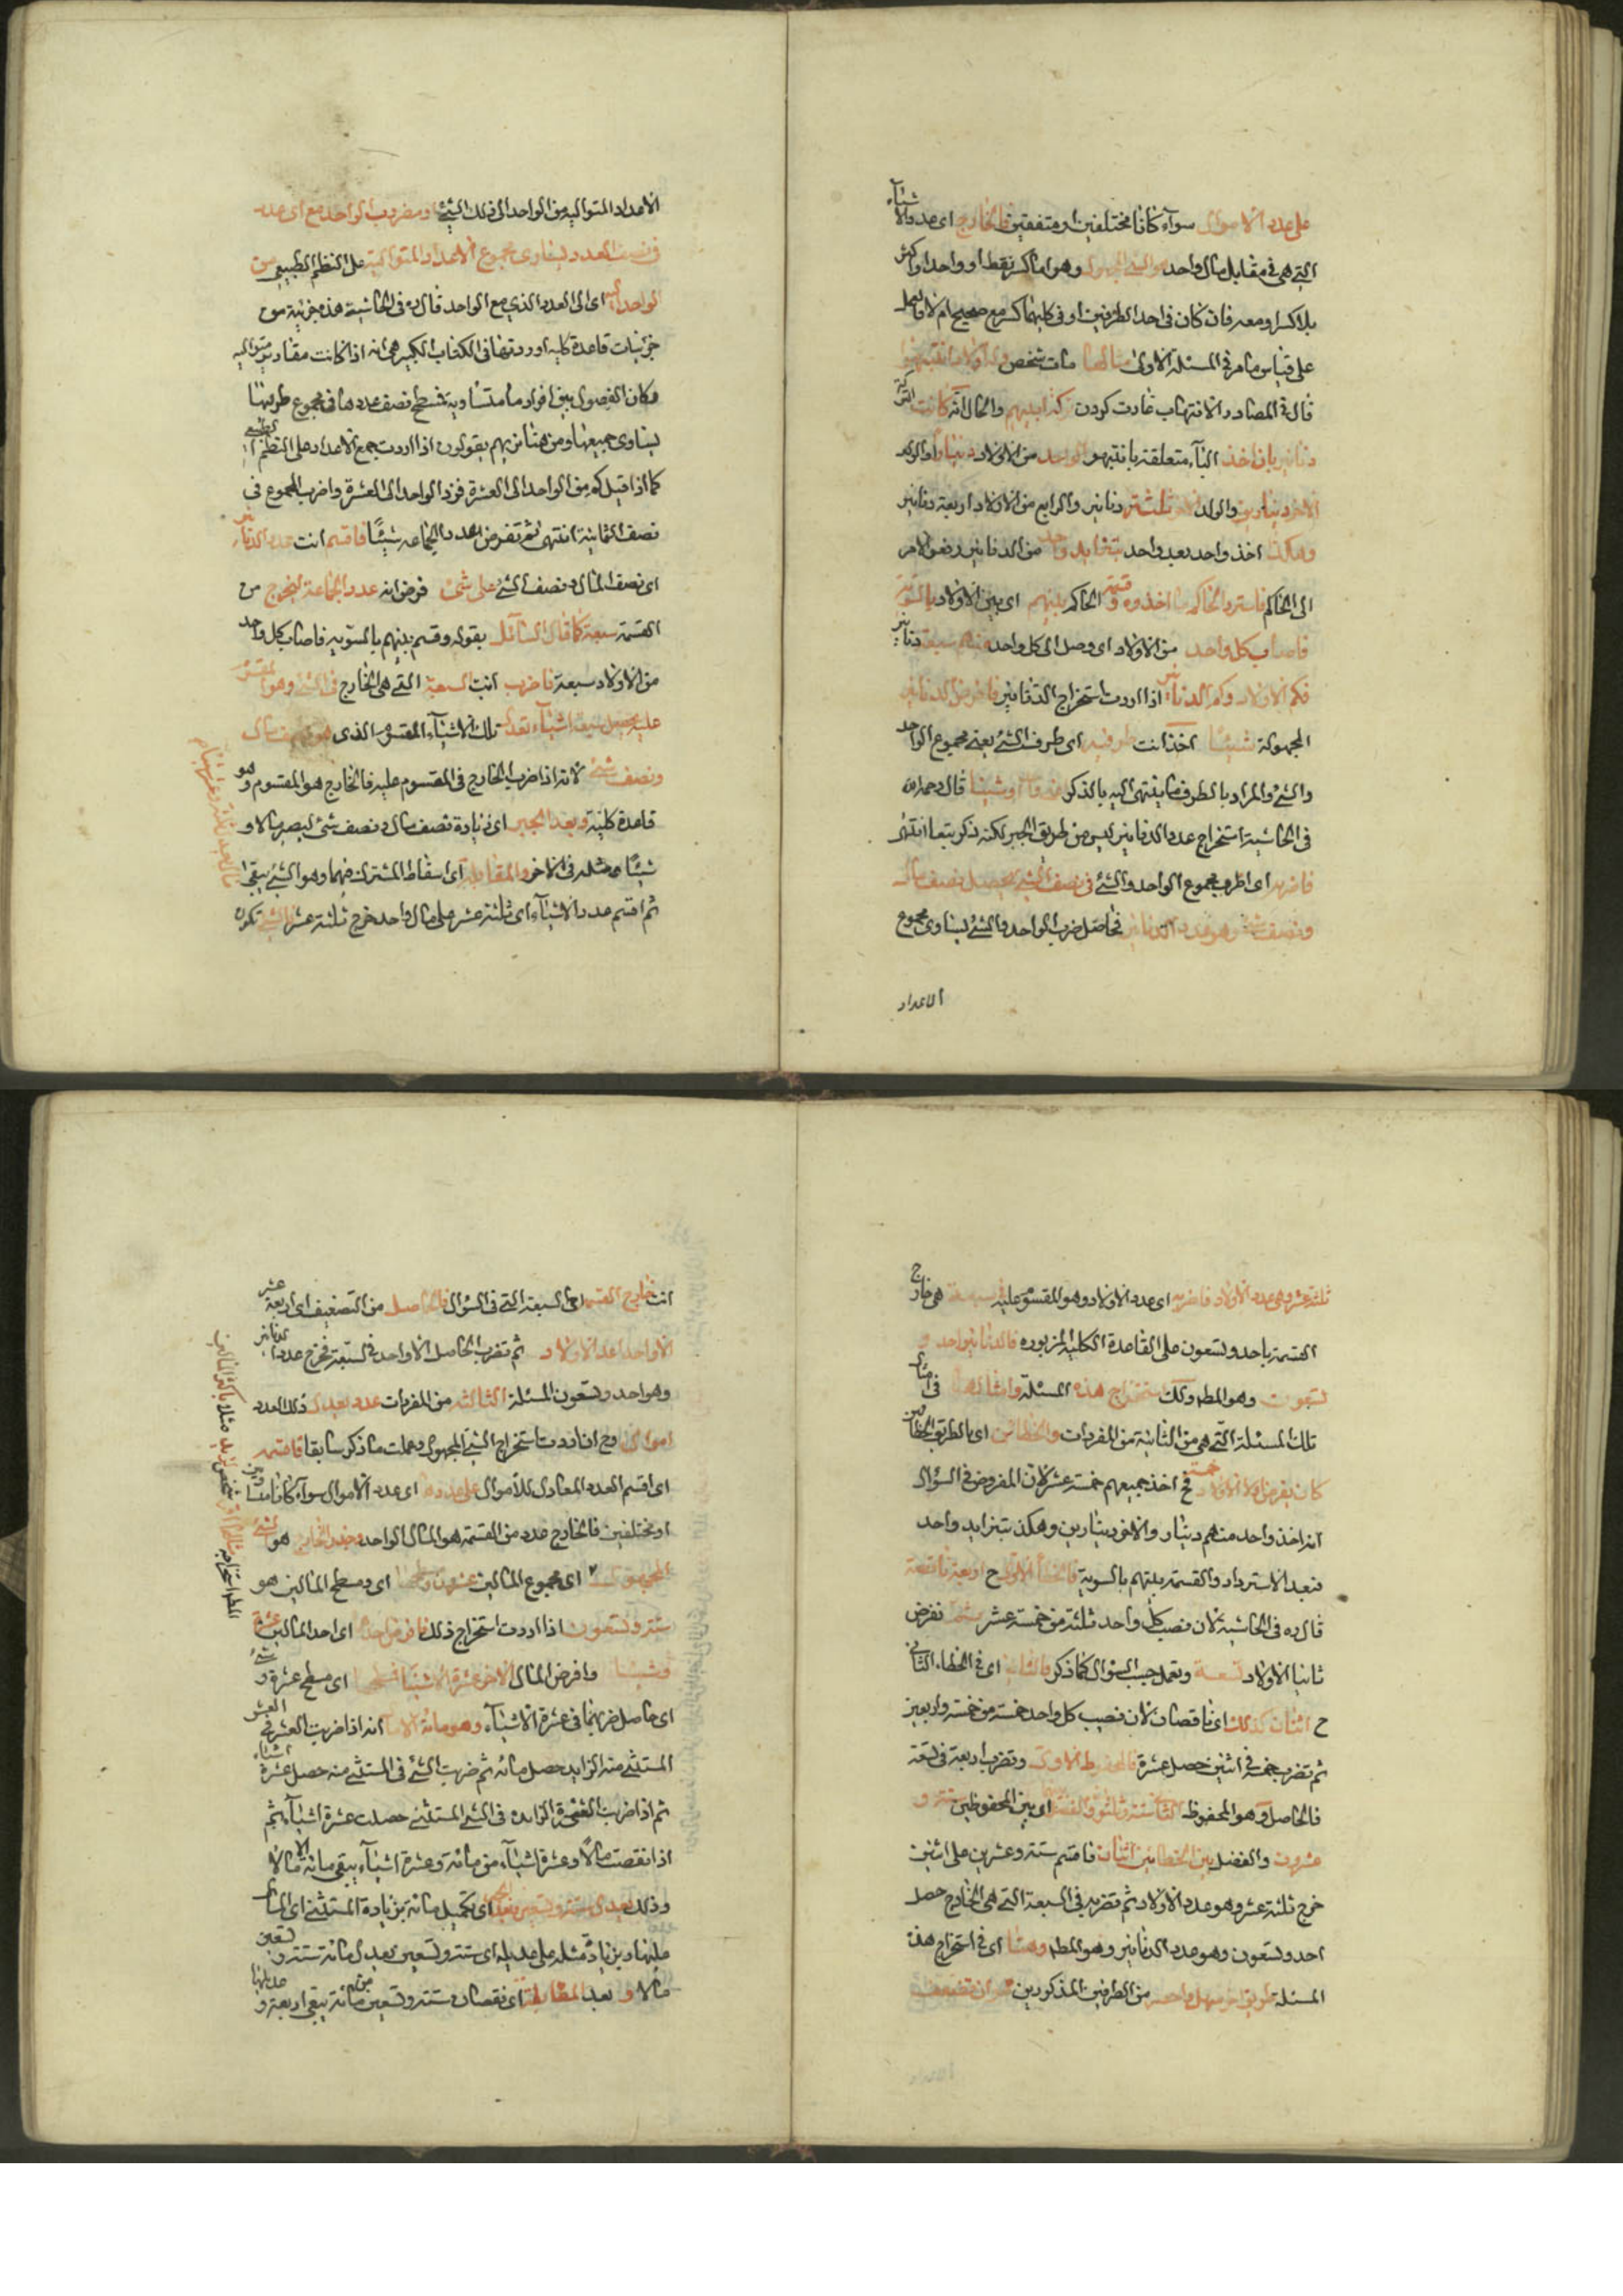 على عدد الاموال سواء كانا مختلفين او متفقين فالخارج اى عدد الاشياء
التى هى فى مقابل مال واحد هو الشئ المجهول وهو اما كسر فقط او واحد او اكثر
بلا كسر او معه فان كان فى احد الطرفين او فى كليهما كسر مع صحيح ام لا فاعمل
على قياس ما مر فى المسئلة الاولى مثالها مات شخص واولاده انتهبوا
قال فى المصادر الانتهاب غارت كردن تركة ابيهم والحال انه كانت التركة
دنانير بان اخذ الباء متعلقة بانتهبوا الواحد من الاولاد دينارا والولد
الاخر دينارين والولد الاخر ثلثة دنانير والرابع من الاولاد اربعة دنانير
وهكذا اخذ واحد بعد واحد بتزايد واحد من الدنانير ورفع الامر
الى الحاكم فاسترد الحاكم ما اخذوه وقسم الحاكم بينهم اى بين الاولاد بالسوية
فاصاب كل واحد من الاولاد اى وصل الى كل واحد منهم سبعة دنانير
فكم الاولاد وكم الدنانير اذا اردت استخراج الدنانير فافرض الدنانير
المجهولة شيئا اخذ انت طرفيه اى طرف الشئ يعنى مجموع الواحد
والشئ والمراد بالطرف ما ينتهى اليه بالذكر قال رحمه الله
فى الحاشية استخراج عدد الدنانير ليس من طريق الجبر لكنه ذكر تبعا انتهى
فاضربه اى اضرب مجموع الواحد والشئ فى نصف الشئ يحصل نصف مال
ونصف شئ وهو عدد الدنانير فحاصل ضرب الواحد والشئ ليساوى مجموع
الاعداد
الاعداد المتوالية من الواحد الى ذلك الشئ اذ مضروب الواحد مع اى عدد
فى نصف العدد ليساوى مجموع الاعداد المتوالية على النظم الطبيعى من
الواحد اليه اى الى العدد الذى مع الواحد قال ره فى الحاشية هذه جزئية من
جزئيات قاعدة كليه اوردتها فى الكتاب الكبير هى انه اذا كانت مقادير متواليه
وكان الفضول بين افرادها متساوية فمسطح نصف عددها فى مجموع طرفيها
ليساوى جميعها ومن هنا تريهم يقولون اذا اردت جمع الاعداد على النظم الطبيعى
كما اذا قيل كم من الواحد الى العشرة فزد الواحد الى العشرة واضرب المجموع فى
نصف الثمانية انتهى ثم تفرض عدد الجماعه شيئا فاقسم انت عدد الدنانير
اى نصف المال ونصف الشئ على شئ فرض انه عدد الجماعة ليخرج من
القسمة سبعة كما قال السائل بقوله وقسم بينهم بالسوية فاصاب كل واحد
من الاولاد سبعة فاضرب انت السبعة التى هى الخارج فى الشئ وهو المقسوم
عليه يحصل سبعة اشياء تعدل تلك الاشياء المقسوم الذى هو نصف مال
ونصف شئ لانه اذا ضرب الخارج فى المقسوم عليه فالخارج هو المقسوم وهو
قاعدة كلية وبعد الجبر اى زيادة نصف مال ونصف شئ ليصير مالا و
شيئا ومثله فى الاخر والمقابلة اى اسقاط المشترك فيهما وهو الشئ يبقى
ثم اقسم عدد الاشياء اى ثلثة عشر على مال واحد خرج ثلثة عشر فالشئ تكون
ثلثة عشر وهى عدد الاولاد فاضربه اى عدد الاولاد وهو المقسوم عليه فى سبعة هى خارج
القسمة باحد وتسعون على القاعدة الكلية المزبوره فالدنانير احد و
تسعون وهو المط ولك استخراج هذه المسئلة وامثالها فى امثال
تلك المسئلة التى هى من الثانية من المفردات والخطائين اى بالطريق الخطائين
كان يفرض اولا الاولاد خمسة فح اخذ جميعهم خمسة عشر لان المفروض فى السؤال
انه اخذ واحد منهم دينار والاخر دينارين وهكذى بتزايد واحد
فبعد الاسترداد والقسمة بينهم بالسوية فالخطأ الاول ح اربعة ناقصة
قال ره فى الحاشية لان نصيب كل واحد ثلثة من خمسة عشر ثم نفرض
ثانيا الاولاد تسعة وتعمل حسب السؤال كما ذكر فالثانى اى فى الخطاء الثانى
ح اثنان كذلك اى ناقصان لان نصيب كل واحد خمسة من خمسة واربعين
ثم تضرب خمسة فى اثنين حصل عشرة فالمحفوظ الاول وتضرب اربعة فى تسعة
فالحاصل وهو المحفوظ الثانى ستة وثلثون والفضل اى بين المحفوظين ستة و
عشرون والفضل بين الخطائين اثنان فاقسم ستة وعشرين على اثنين
خرج ثلثة عشر وهو عدد الاولاد ثم تضربه فى السبعة التى هى الخارج حصل
احد وتسعون وهو عدد الدنانير وهو المط وهنا اى فى استخراج هذه
المسئلة طريق اخر سهل واخصر من الطرفين المذكورين هو ان تضعف
انت خارج القسمة اى السبعة التى فى السؤال فالحاصل من التضعيف اى اربعة عشر
الا واحدا عدد الاولاد ثم تضرب الحاصل الا واحد فى السبعة فخرج عدد الدنانير
وهو احد وتسعون المسئلة الثالثة من المفردات عدد يعدل ذلك العدد
اموالا وح ان اردت استخراج الشئ المجهول وعملت ما ذكر سابقا فاقسمه
اى اقسم العدد المعادل للاموال على عددها اى عدد الاموال سواء كانا متساويين
او مختلفين فالخارج عدد من القسمة هو المال الواحد وجذر الخارج هو الشئ
المجهول اى مجموع المالين عشرون ومسطحهما اى ومسطح المالين هو
ستة وتسعون اذا اردت استخراج ذلك فافرض احدهما اى احد المالين عشرة
وشيئا وافرض المال الاخر عشرة الا شيئا فمسطحهما اى مسطح عشرة وشئ
اى حاصل ضربهما فى عشرة الا شياء وهو مائة الا مالا انه اذا ضربت العشر فى العشر
المستثنى منه الزايد حصل مائة ثم ضربت الشئ فى المستثنى منه حصل عشرة اشياء
ثم اذا ضربت العشرة الزايده فى الشئ المستثنى حصلت عشرة اشياء ثم
اذا نقصت مالا وعشرة اشياء من مائة وعشرة اشياء يبقى مائة الا مالا
وذلك يعدل ستة وتسعين فبعد الجبر اى تكميل مائة بزيادة المستثنى اى المال
عليها وبزيادة مثله على عديله اى ستة وتسعين يعدل مائة ستة وتسعين
مالا و بعد المقابلة اى نقصان ستة وتسعين من مائة يبقى اربعة و